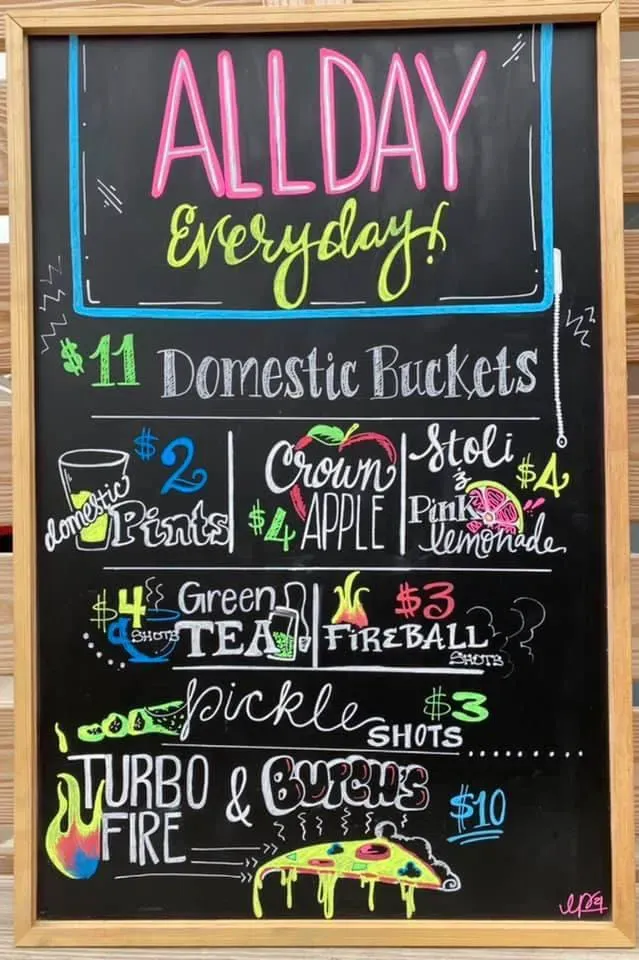 ALLDAY
Everyday!
$11 Domestic Buckets
$2
domestic Pints
Crown
$4 APPLE
Stoli
&
$4
Pink
lemonade
$4 SHOTS
Green
TEA
$3
FIREBALL
SHOTS
pickle $3
SHOTS
TURBO
FIRE
& BUTCH'S
$10